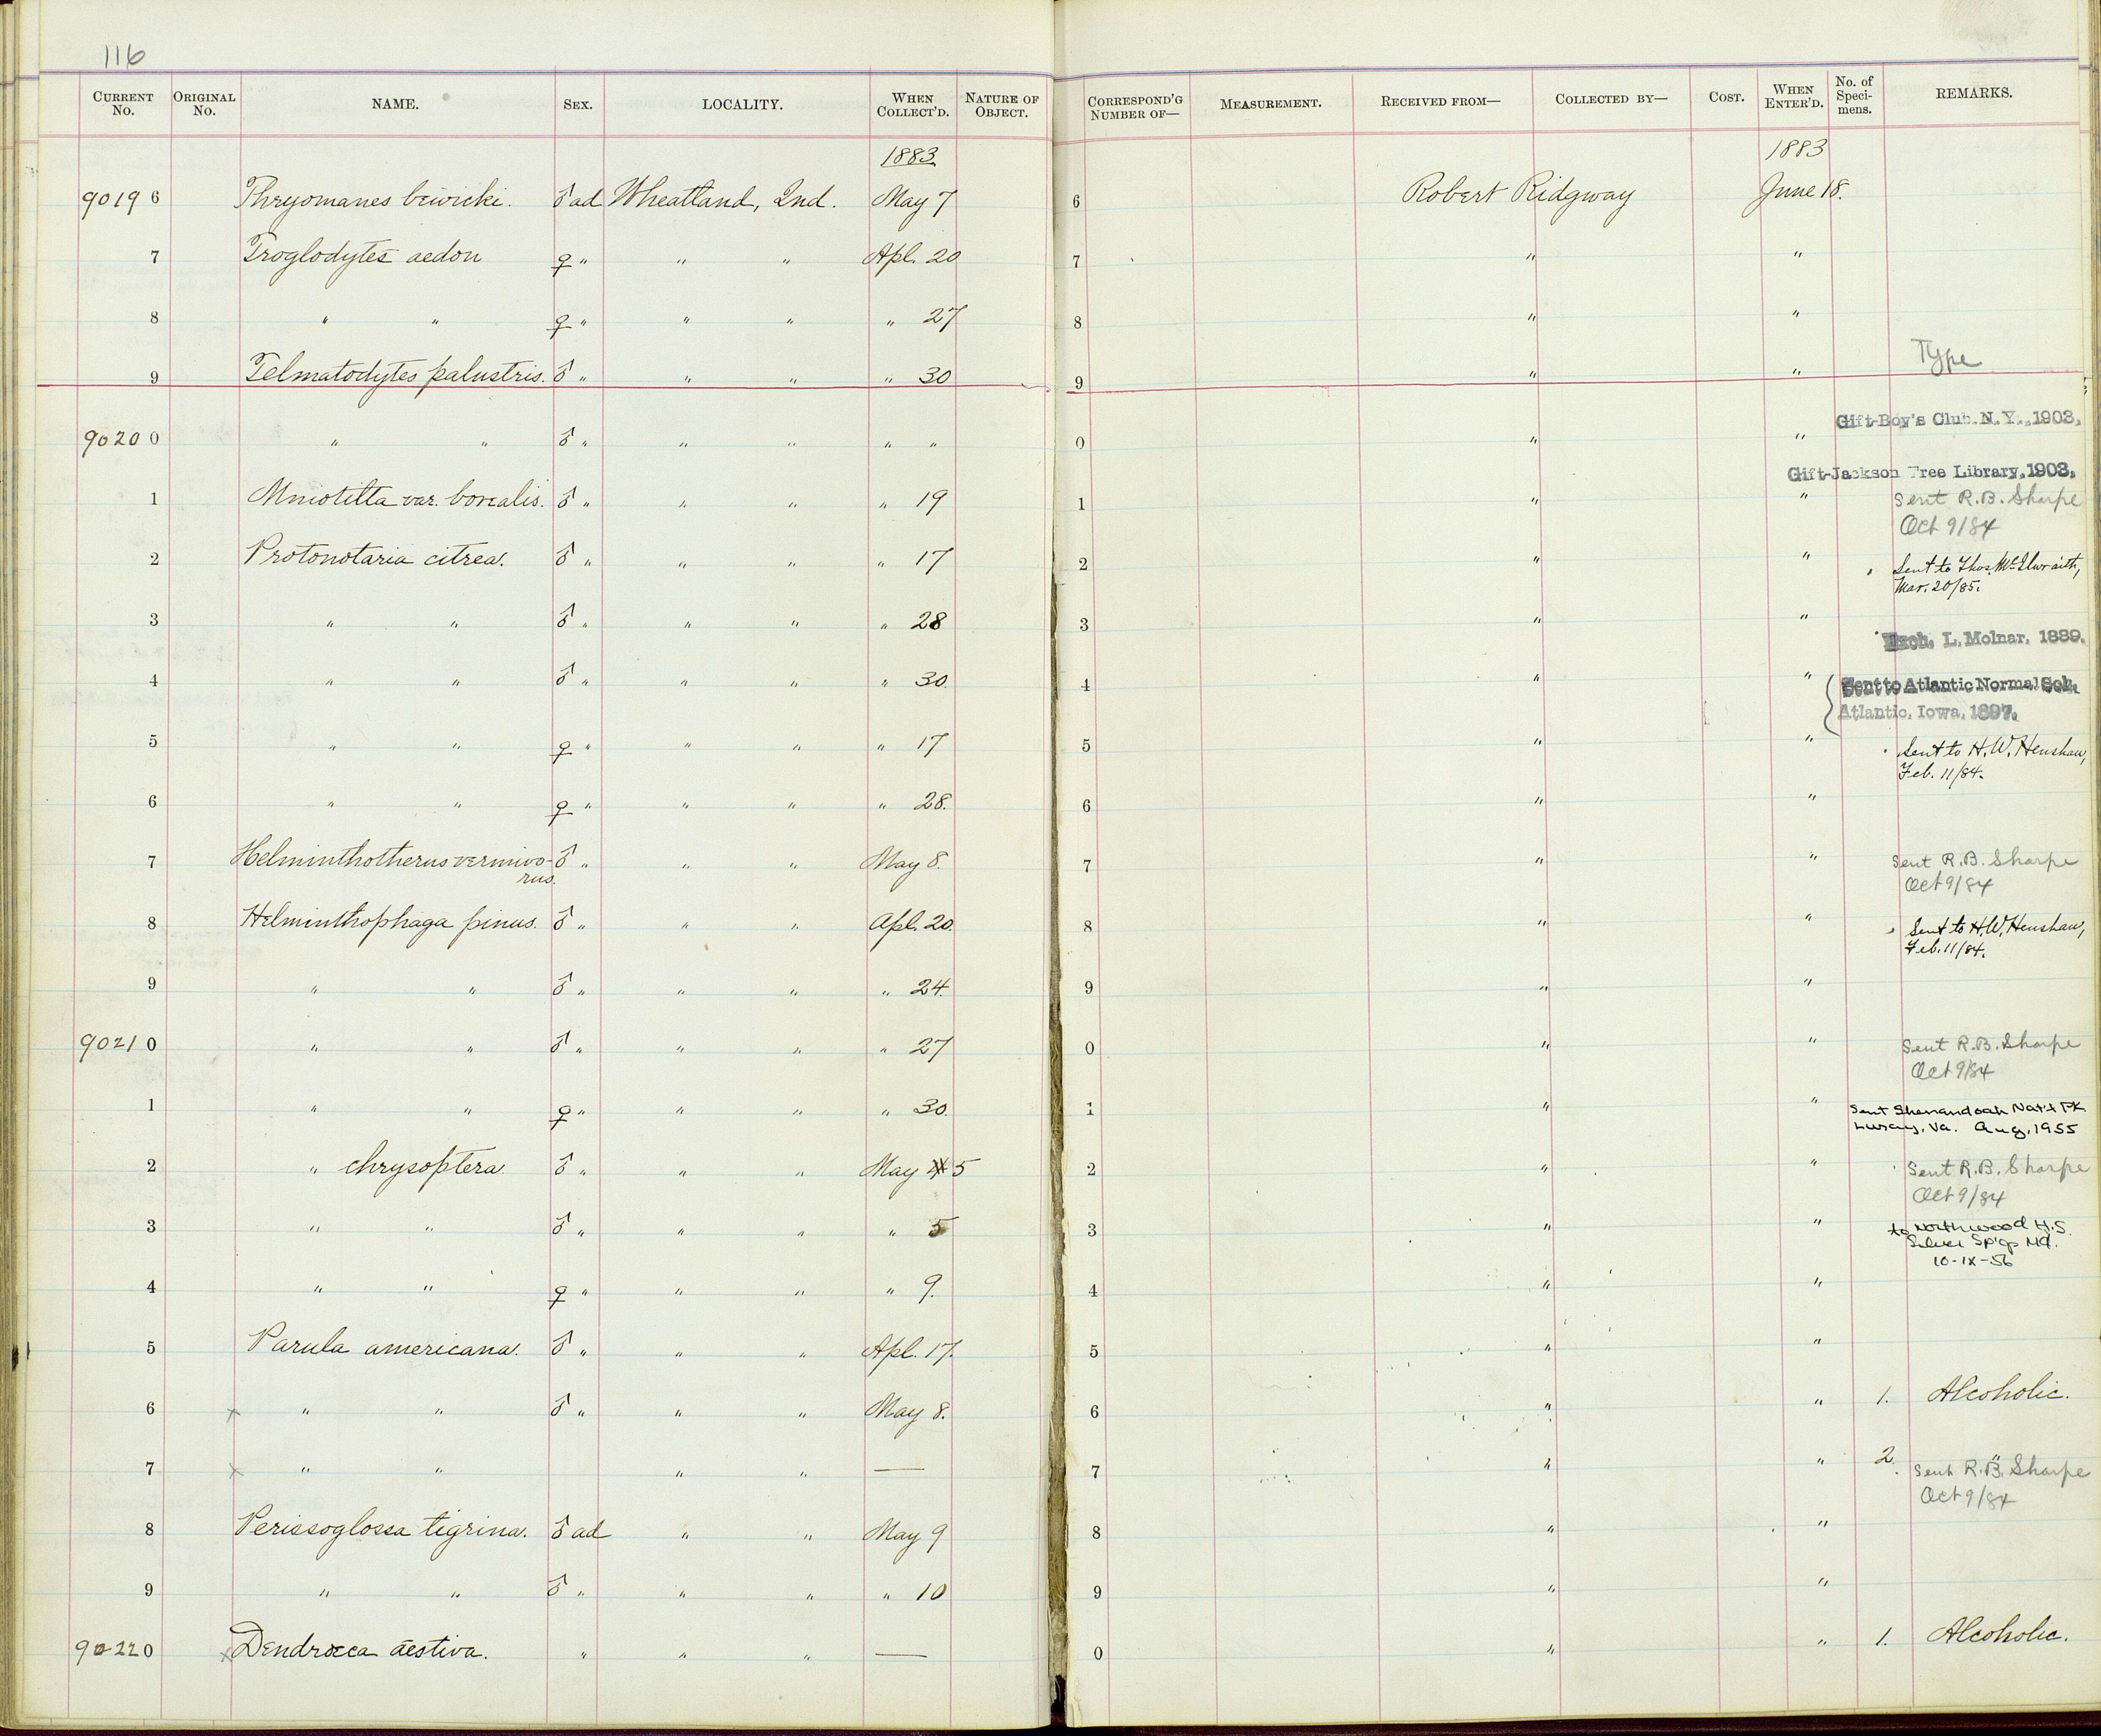 116
CURRENT No. ORIGINAL No. NAME. SEX. LOCALITY. WHEN COLLECT'D. NATURE OF OBJECT. CORRESPOND'G NUMBER OF— MEASUREMENT. RECEIVED FROM— COLLECTED BY— COST. WHEN ENTER'D. No. of Speci-mens. REMARKS.
1883 1883
90196 Thryomanes bewicki. ♂ ad Wheatland, Ind. May 7 6 Robert Ridgway June 18.
7 Troglodytes aedon ♀ " " " Apl. 20 7 " "
8 " " ♀ " " " " 27 8 " "
9 Telmatodytes palustris. ♂ " " " " 30 9 " " Type
90200 " " ♂ " " " " " 0 " " Gift-Boy's Club. N. Y., 1903.
Gift-Jackson Free Library, 1903.
1 Mniotilta var. borealis. ♂ " " " " 19 1 " " Sent R.B. Sharpe
Oct 9/84
2 Protonotaria citrea. ♂ " " " " 17 2 " " Sent to Thos. McIlwraith,
Mar. 20/85.
3 " " ♂ " " " " 28 3 " "
Exch. L. Molnar, 1889.
4 " " ♂ " " " " 30. 4 " " Sent to Atlantic Normal Sch.
Atlantic, Iowa, 1897.
5 " " ♀ " " " " 17 5 " " Sent to H. W. Henshaw,
Feb. 11/84.
6 " " ♀ " " " " 28. 6 " "
7 Helminthotherus vermivo- ♂ " " " May 8. 7 " " Sent R.B. Sharpe
rus. Oct 9/84
8 Helminthophaga pinus. ♂ " " " Apl. 20. 8 " " Sent to H. W. Henshaw,
Feb. 11/84.
9 " " ♂ " " " " 24. 9 " "
90210 " " ♂ " " " " 27 0 " " Sent R.B. Sharpe
Oct 9/84
1 " " ♀ " " " " 30. 1 " " Sent Shenandoah Nat'l Pk
Luray, Va. Aug, 1955
2 " chrysoptera ♂ " " " May 5 2 " " Sent R.B. Sharpe
Oct 9/84
3 " " ♂ " " " " 5 3 " " to Northwood H.S.
Silver Sp'gs Md.
10-IX-56
4 " " ♀ " " " " 9. 4 " "
5 Parula americana. ♂ " " " Apl. 17. 5 " "
6 x " " ♂ " " " May 8. 6 " " 1. Alcoholic.
7 x " " " " — 7 " " 2. "
Sent R.B. Sharpe
Oct 9/84
8 Perissoglossa tigrina. ♂ ad " " May 9 8 " "
9 " " ♂ " " " " 10 9 " "
90220 x Dendroeca aestiva. " " " — 0 " " 1. Alcoholic.